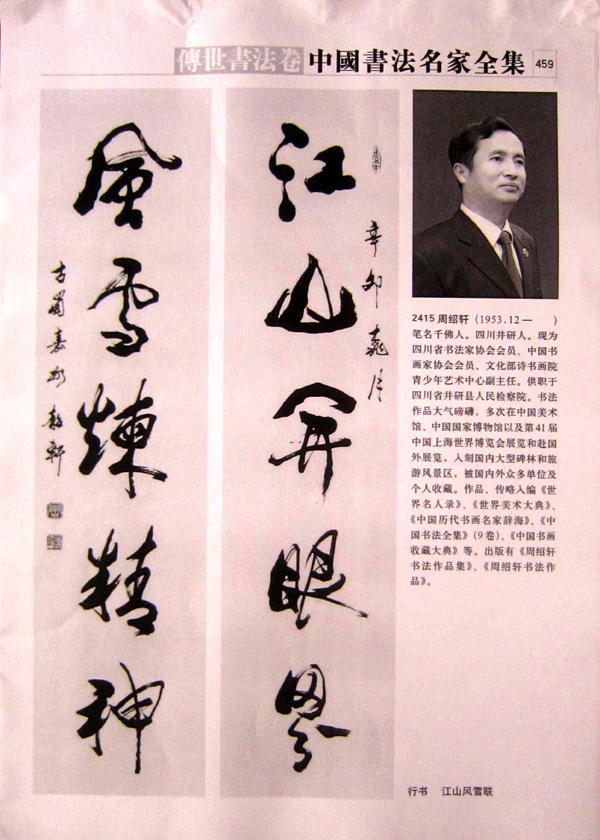 傳世書法卷 中國書法名家全集 459
江山开眼界
辛卯
月
風雪煉精神
古蜀嘉州
軒
2415 周绍轩 (1953.12— )
笔名千佛人。四川井研人。现为
四川省书法家协会会员、中国书
画家协会会员、文化部诗书画院
青少年艺术中心副主任。供职于
四川省井研县人民检察院。书法
作品大气磅礴，多次在中国美术
馆、中国国家博物馆以及第41届
中国上海世界博览会展览和赴国
外展览，入刻国内大型碑林和旅
游风景区，被国内外众多单位及
个人收藏。作品、传略入编《世
界名人录》、《世界美术大典》、
《中国历代书画名家辞海》、《中
国书法全集》(9卷)、《中国书画
收藏大典》等。出版有《周绍轩
书法作品集》、《周绍轩书法作
品》。
行书 江山风雪联